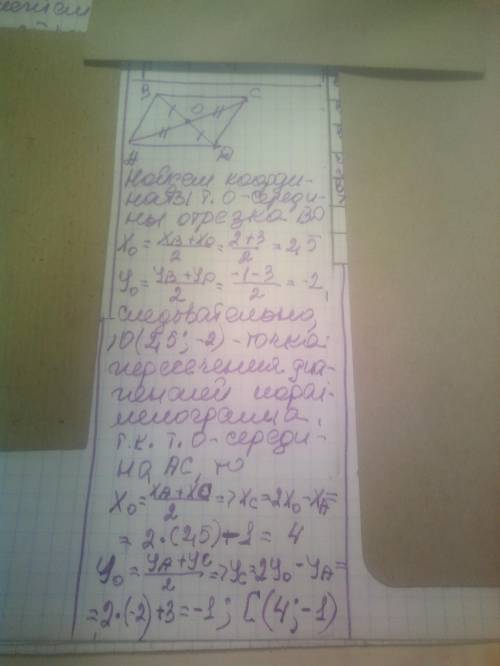 B
O
C
A
D
Найдем коорди-
наты т. О-середи-
ны отрезка BD
X₀ = (X_B + X_D)/2 = (2+3)/2 = 2,5
Y₀ = (Y_B + Y_D)/2 = (-1-3)/2 = -2,
следовательно,
O(2,5; -2) - точка
пересечения диа-
гоналей парал-
лелограмма,
т.к. т. О-середи-
на AC, то
X₀ = (X_A + X_C)/2 => X_C = 2X₀ - X_A =
= 2·(2,5) - 1 = 4
Y₀ = (Y_A + Y_C)/2 => Y_C = 2Y₀ - Y_A =
= 2·(-2) + 3 = -1; C(4; -1)